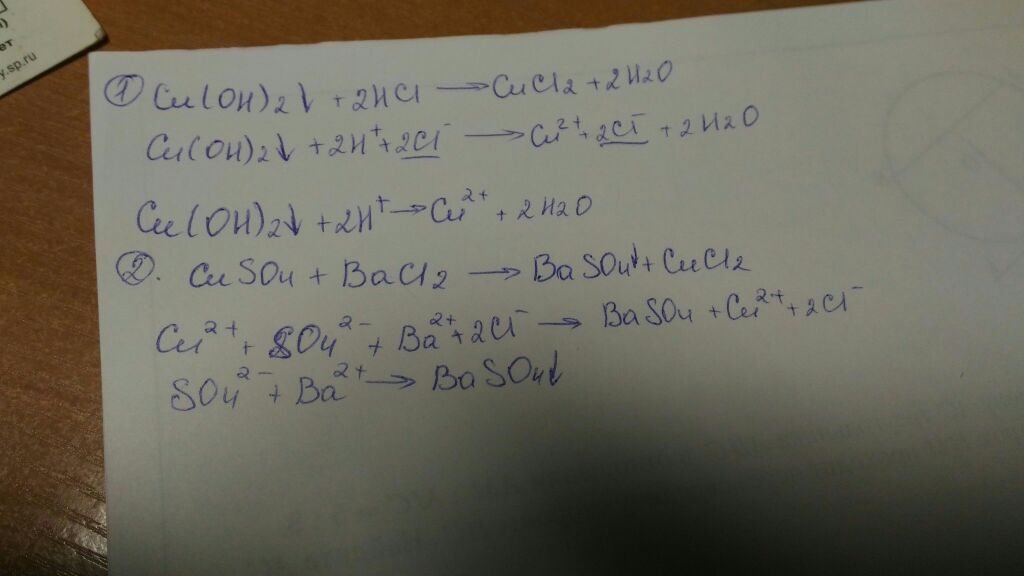 ет
y.sp.ru
① Cu(OH)2↓ + 2HCl → CuCl2 + 2H2O
Cu(OH)2↓ + 2H⁺ + 2Cl⁻ → Cu²⁺ + 2Cl⁻ + 2H2O
Cu(OH)2↓ + 2H⁺ → Cu²⁺ + 2H2O
②. CuSO4 + BaCl2 → BaSO4↓ + CuCl2
Cu²⁺ + SO4²⁻ + Ba²⁺ + 2Cl⁻ → BaSO4 + Cu²⁺ + 2Cl⁻
SO4²⁻ + Ba²⁺ → BaSO4↓